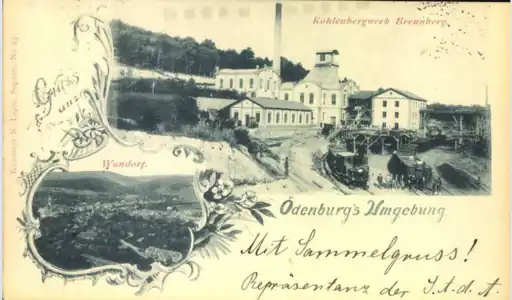 Kohlenbergwerk Brennberg.
Gruss
aus
Wandorf.
Ödenburg's Umgebung
Mit Sammelgruss!
Repräsentanz der I.A.d.A.